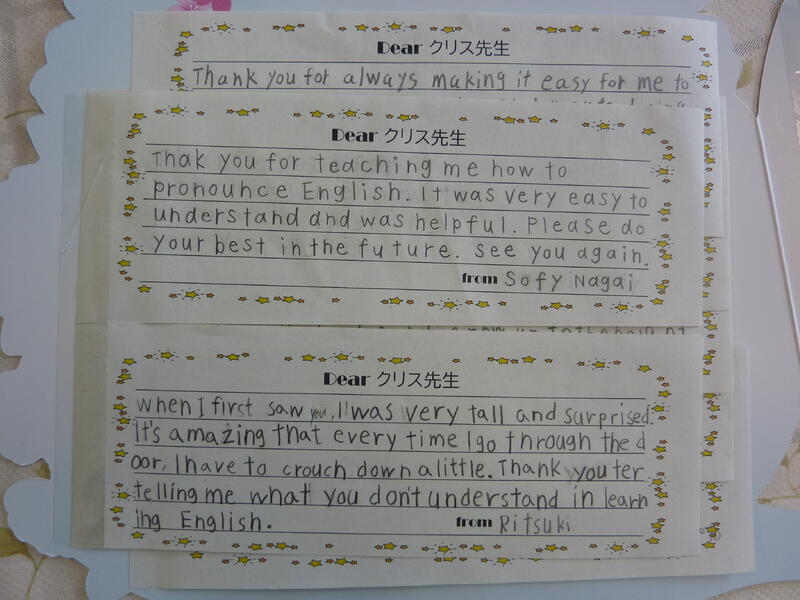 Dear クリス先生
Thank you for always making it easy for me to
Dear クリス先生
Thak you for teaching me how to
pronounce English. It was very easy to
understand and was helpful. Please do
your best in the future. see you again.
from Sofy Nagai
Dear クリス先生
when I first saw you, I was very tall and surprised.
It's amazing that every time I go through the d
oor, I have to crouch down a little. Thank you ter
telling me what you don't understand in learn
ing English.
from Ritsuki